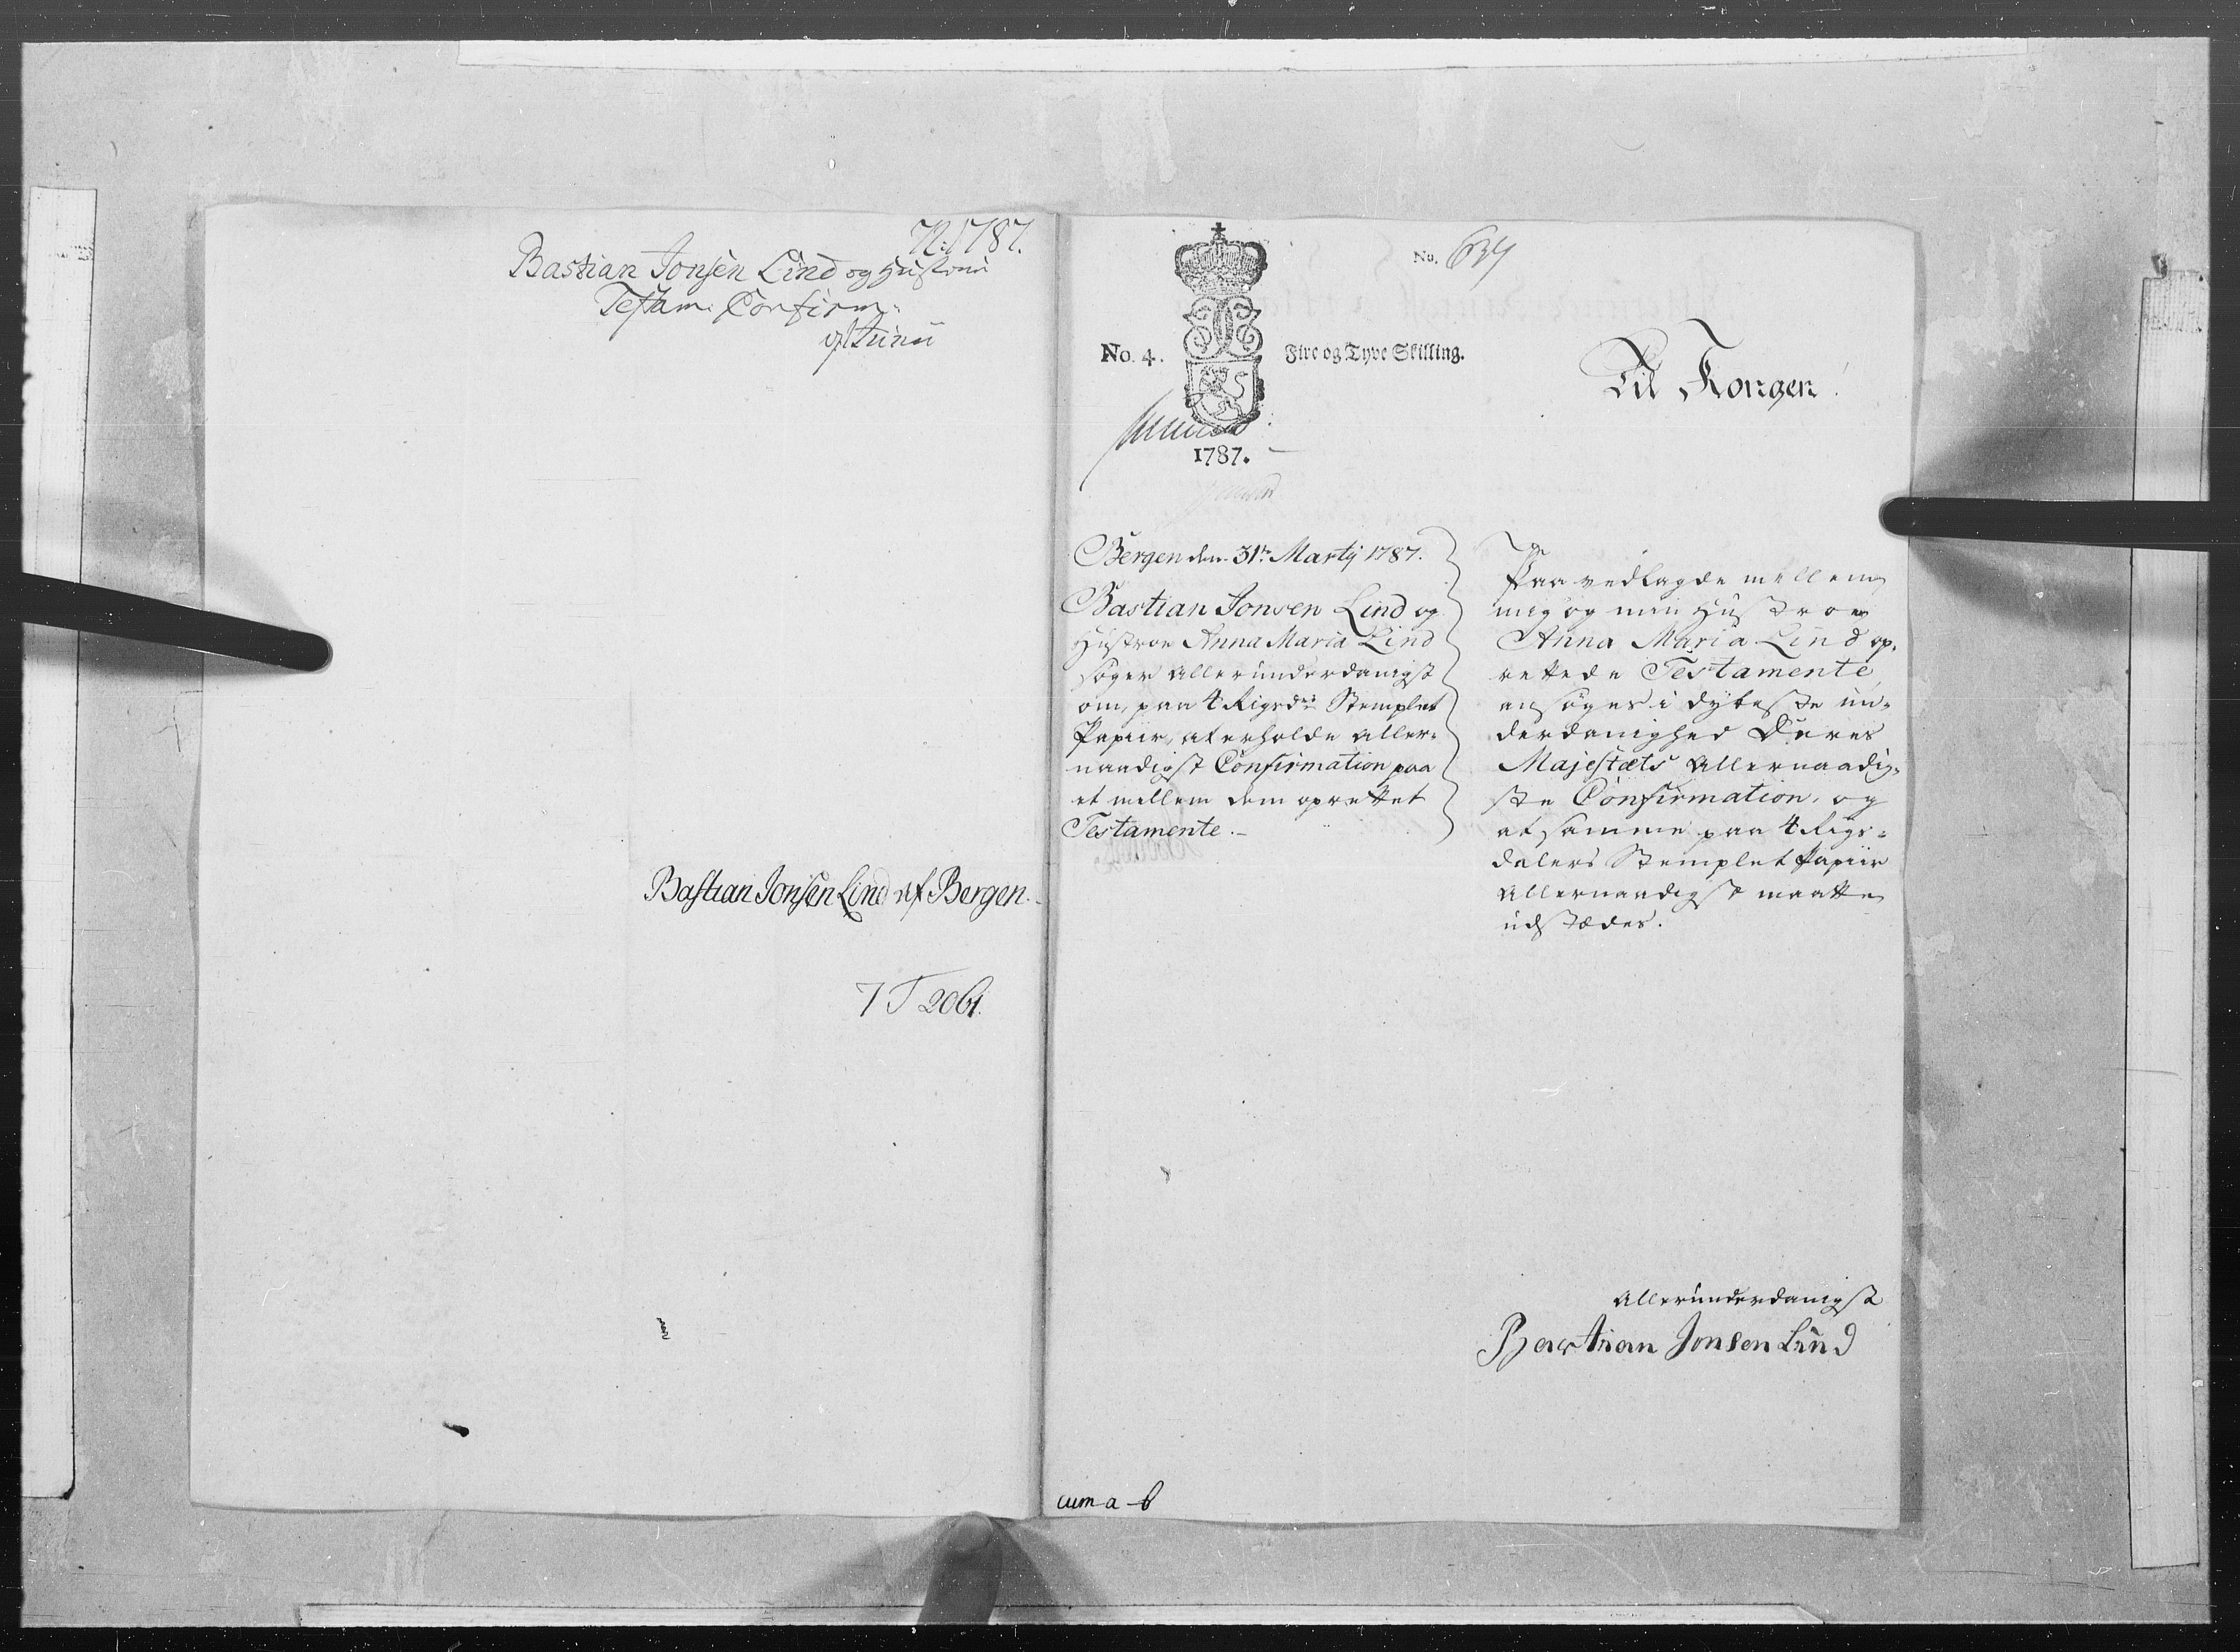 N: 1787.
Bastian Jonsen Lind og Hustrue
Testam: Confirm:
Junii
Bastian Jonsen Lind af Bergen.
7 T 2061.
No. 639
No. 4.
Five og Tyve Skilling.
1787.
Til Kongen!
Bergen den 31te Martij 1787.
Bastian Jonsen Lind og
Hustroe Anna Maria Lind
søger allerunderdanigst
om, paa 4 Rigsdrs Stemplet
Papiir, at erholde aller-
naadigst Confirmation paa
et mellem dem oprettet
Testamente.-
Paa vedlagde mellem
mig og min Hustroe
Anna Maria Lind op-
rettede Testamente,
ansøges i dybeste un-
derdanighed Deres
Majestæts allernaadig-
ste Confirmation, og
at samme paa 4 Rigs-
dalers Stemplet Papiir
allernaadigst maatte
udstædes.
allerunderdanigst
Bastian Jonsen Lind
cum a - b